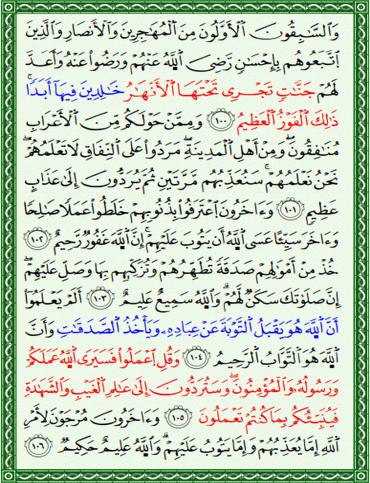 وَٱلسَّٰبِقُونَ ٱلْأَوَّلُونَ مِنَ ٱلْمُهَٰجِرِينَ وَٱلْأَنصَارِ وَٱلَّذِينَ
ٱتَّبَعُوهُم بِإِحْسَٰنٍ رَّضِىَ ٱللَّهُ عَنْهُمْ وَرَضُوا۟ عَنْهُ وَأَعَدَّ
لَهُمْ جَنَّٰتٍ تَجْرِى تَحْتَهَا ٱلْأَنْهَٰرُ خَٰلِدِينَ فِيهَآ أَبَدًا ۚ
ذَٰلِكَ ٱلْفَوْزُ ٱلْعَظِيمُ ١٠٠ وَمِمَّنْ حَوْلَكُم مِّنَ ٱلْأَعْرَابِ
مُنَٰفِقُونَ ۖ وَمِنْ أَهْلِ ٱلْمَدِينَةِ ۖ مَرَدُوا۟ عَلَى ٱلنِّفَاقِ لَا تَعْلَمُهُمْ ۖ
نَحْنُ نَعْلَمُهُمْ ۚ سَنُعَذِّبُهُم مَّرَّتَيْنِ ثُمَّ يُرَدُّونَ إِلَىٰ عَذَابٍ
عَظِيمٍ ١٠١ وَءَاخَرُونَ ٱعْتَرَفُوا۟ بِذُنُوبِهِمْ خَلَطُوا۟ عَمَلًا صَٰلِحًا
وَءَاخَرَ سَيِّئًا عَسَى ٱللَّهُ أَن يَتُوبَ عَلَيْهِمْ ۚ إِنَّ ٱللَّهَ غَفُورٌ رَّحِيمٌ ١٠٢
خُذْ مِنْ أَمْوَٰلِهِمْ صَدَقَةً تُطَهِّرُهُمْ وَتُزَكِّيهِم بِهَا وَصَلِّ عَلَيْهِمْ ۖ
إِنَّ صَلَوٰتَكَ سَكَنٌ لَّهُمْ ۗ وَٱللَّهُ سَمِيعٌ عَلِيمٌ ١٠٣ أَلَمْ يَعْلَمُوٓا۟
أَنَّ ٱللَّهَ هُوَ يَقْبَلُ ٱلتَّوْبَةَ عَنْ عِبَادِهِۦ وَيَأْخُذُ ٱلصَّدَقَٰتِ وَأَنَّ
ٱللَّهَ هُوَ ٱلتَّوَّابُ ٱلرَّحِيمُ ١٠٤ وَقُلِ ٱعْمَلُوا۟ فَسَيَرَى ٱللَّهُ عَمَلَكُمْ
وَرَسُولُهُۥ وَٱلْمُؤْمِنُونَ ۖ وَسَتُرَدُّونَ إِلَىٰ عَٰلِمِ ٱلْغَيْبِ وَٱلشَّهَٰدَةِ
فَيُنَبِّئُكُم بِمَا كُنتُمْ تَعْمَلُونَ ١٠٥ وَءَاخَرُونَ مُرْجَوْنَ لِأَمْرِ
ٱللَّهِ إِمَّا يُعَذِّبُهُمْ وَإِمَّا يَتُوبُ عَلَيْهِمْ ۗ وَٱللَّهُ عَلِيمٌ حَكِيمٌ ١٠٦